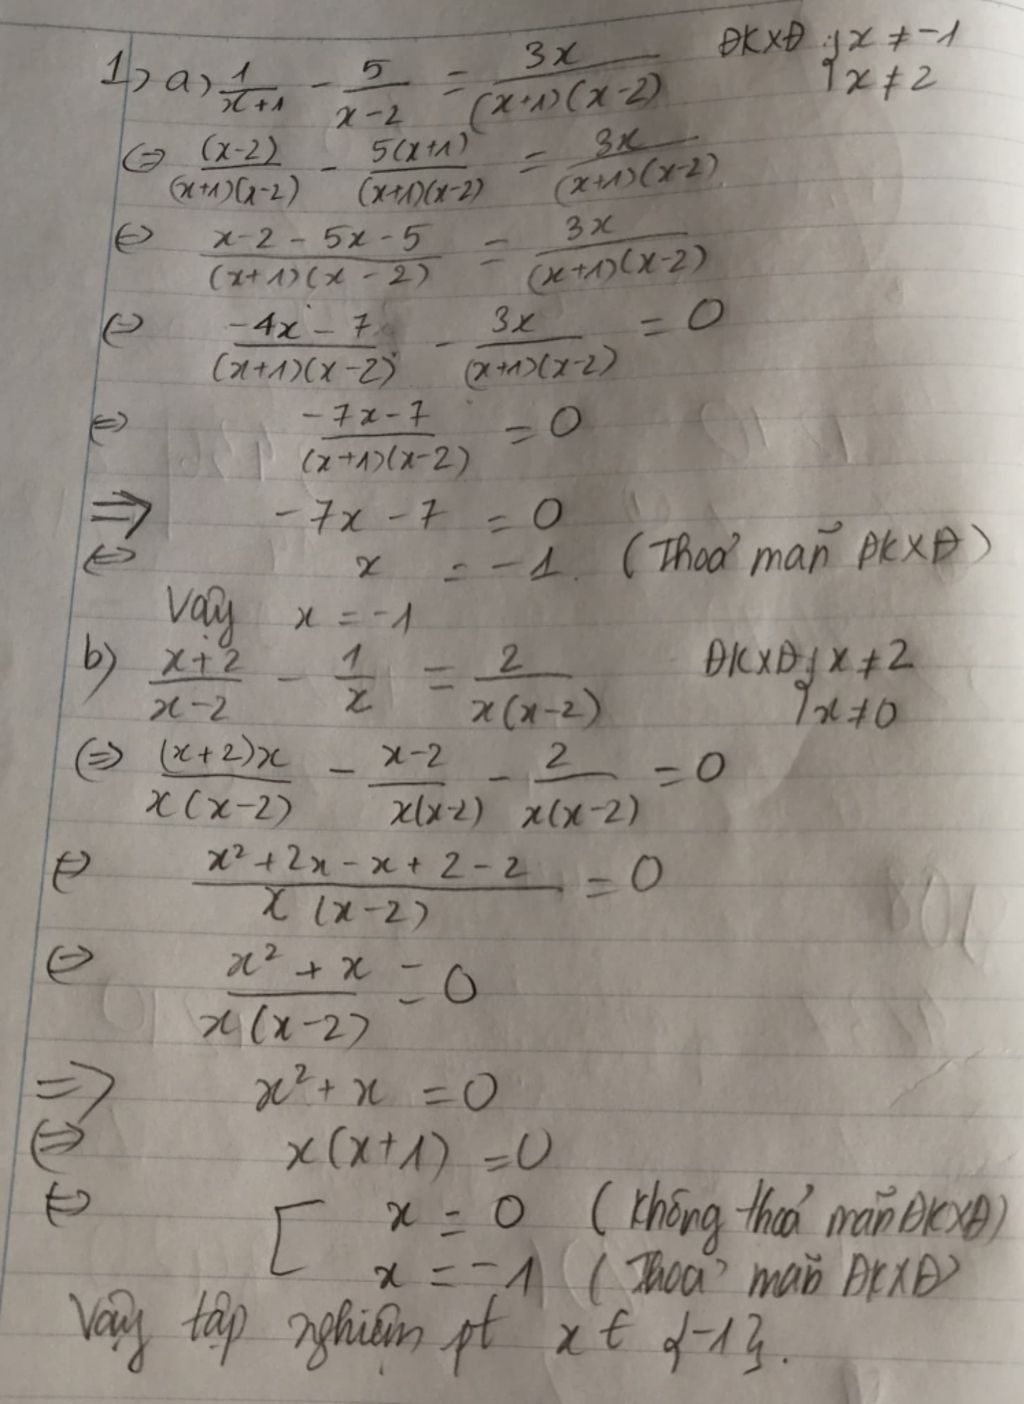 1) a) 1/(x+1) - 5/(x-2) = 3x/((x+1)(x-2)) ĐKXĐ { x ≠ -1
{ x ≠ 2
⇔ (x-2)/((x+1)(x-2)) - 5(x+1)/((x+1)(x-2)) = 3x/((x+1)(x-2))
⇔ (x-2-5x-5)/((x+1)(x-2)) = 3x/((x+1)(x-2))
⇔ (-4x-7)/((x+1)(x-2)) - 3x/((x+1)(x-2)) = 0
⇔ (-7x-7)/((x+1)(x-2)) = 0
⇒ -7x-7 = 0
⇔ x = -1. (Thoả mãn ĐKXĐ)
Vậy x = -1
b) (x+2)/(x-2) - 1/x = 2/(x(x-2)) ĐKXĐ { x ≠ 2
{ x ≠ 0
⇔ (x+2)x/(x(x-2)) - (x-2)/(x(x-2)) - 2/(x(x-2)) = 0
⇔ (x²+2x-x+2-2)/(x(x-2)) = 0
⇔ (x²+x)/(x(x-2)) = 0
⇒ x²+x = 0
⇔ x(x+1) = 0
⇔ [ x = 0 (Không thoả mãn ĐKXĐ)
x = -1 (Thoả mãn ĐKXĐ)
Vậy tập nghiệm pt x ∈ {-1}.